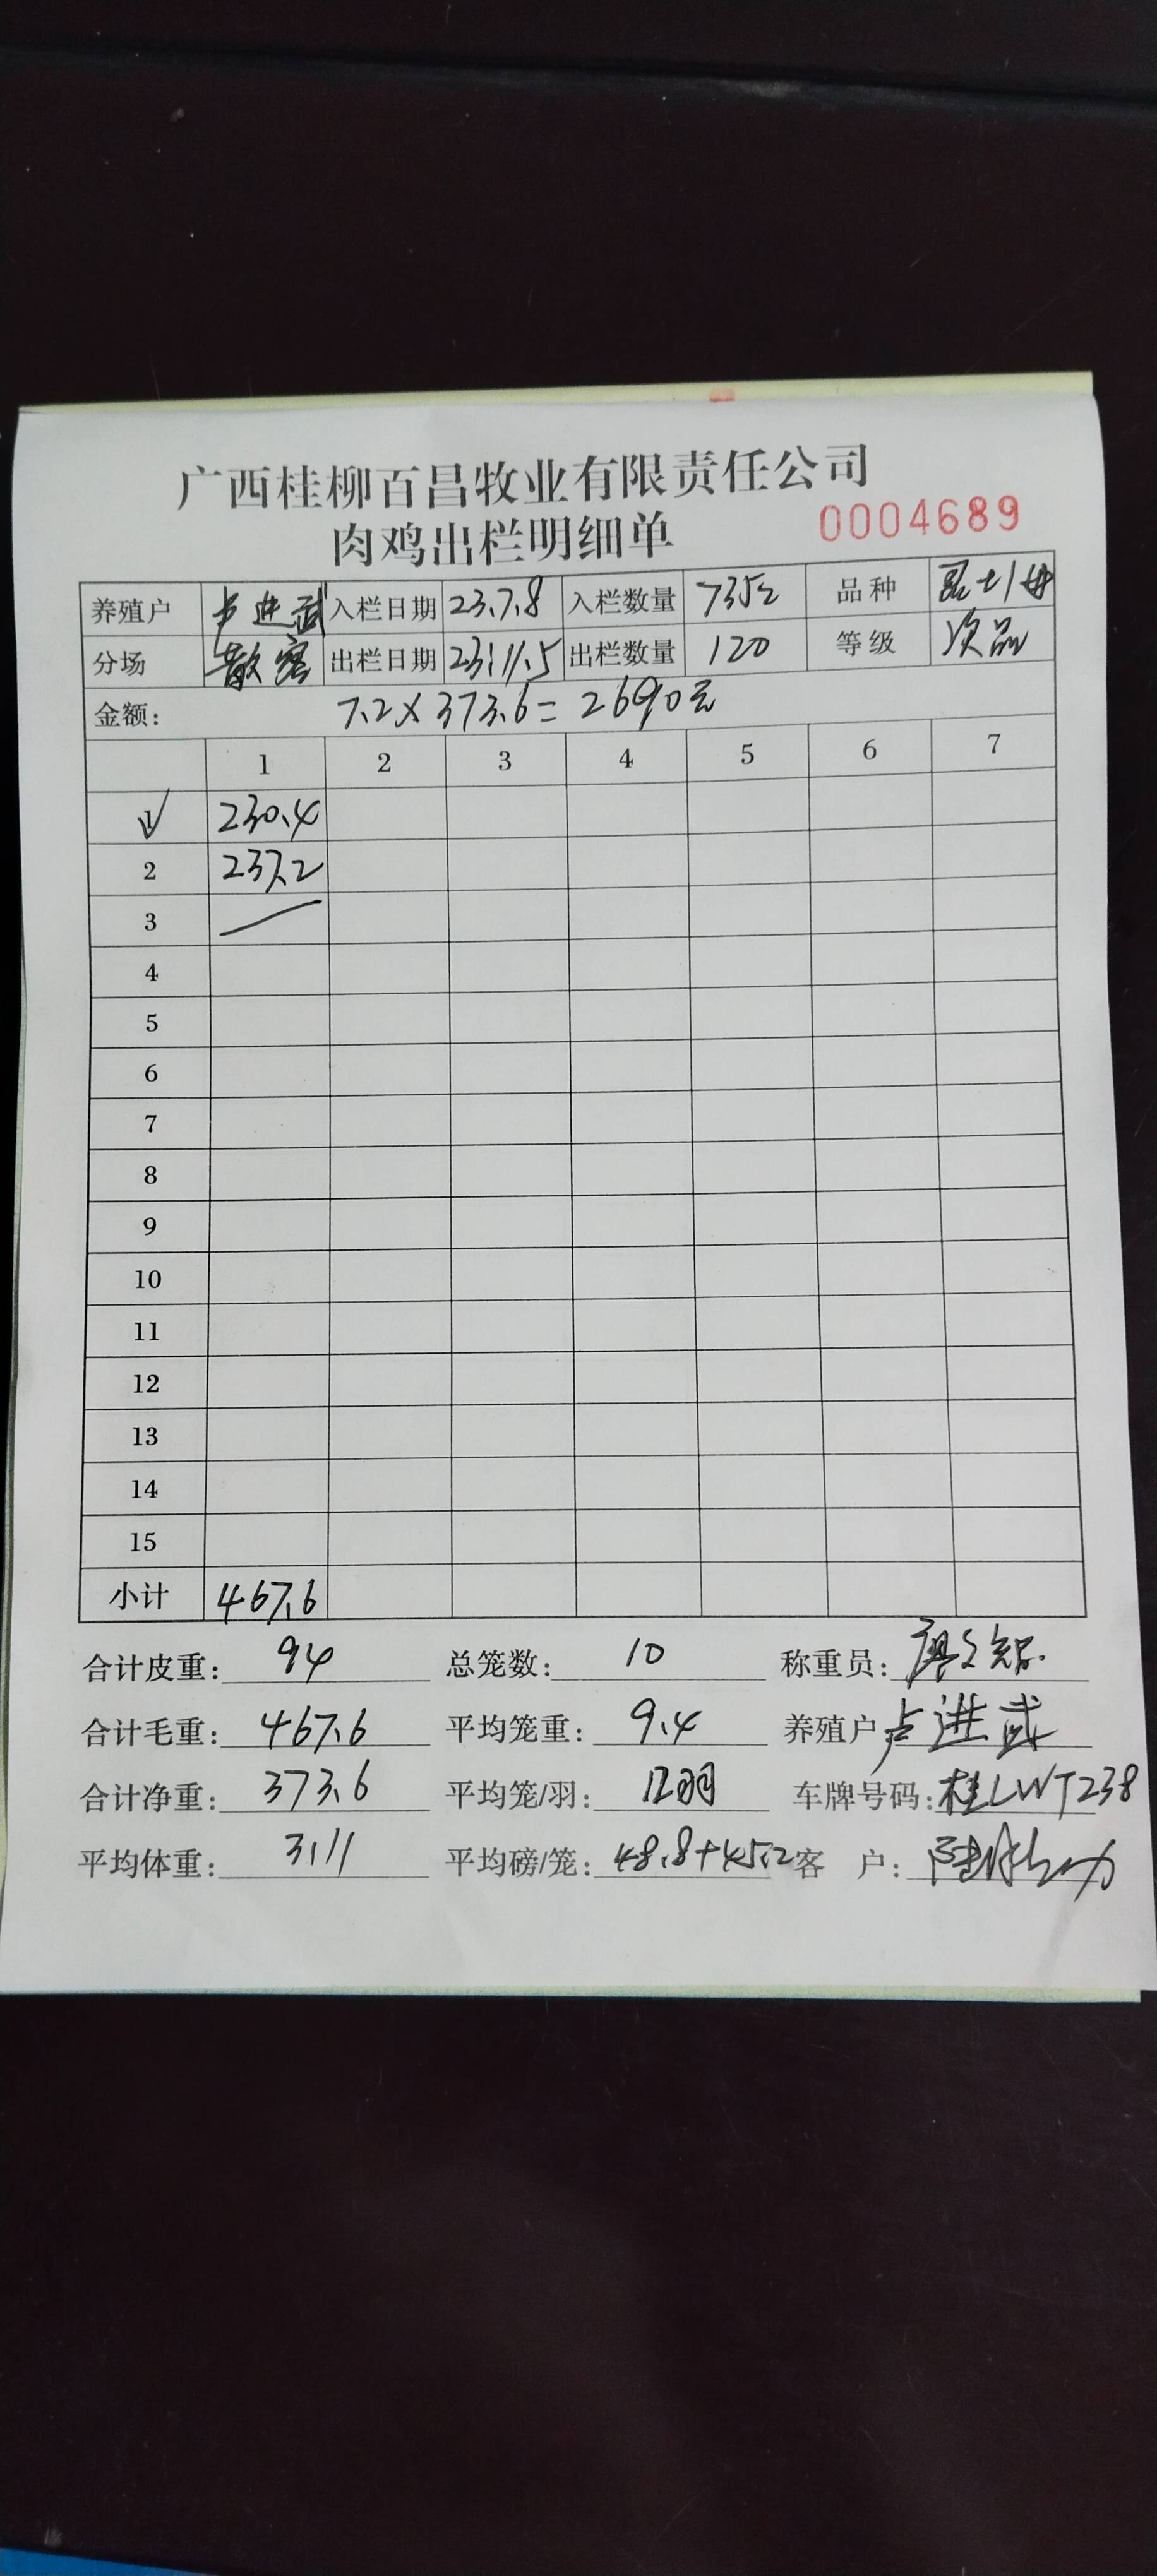 广西桂柳百昌牧业有限责任公司
肉鸡出栏明细单 0004689
养殖户 卢进武 入栏日期 23.7.8 入栏数量 7352 品种
分场 散客 出栏日期 23.11.5 出栏数量 120 等级 次品
金额: 7.2×373.6=2690元
1 2 3 4 5 6 7
1 230.4
2 237.2
3
4
5
6
7
8
9
10
11
12
13
14
15
小计 467.6
合计皮重: 94 总笼数: 10 称重员:
合计毛重: 467.6 平均笼重: 9.4 养殖户 卢进武
合计净重: 373.6 平均笼/羽: 12羽 车牌号码: 桂LWT238
平均体重: 3.11 平均磅/笼: 48.8+45.2 客 户: